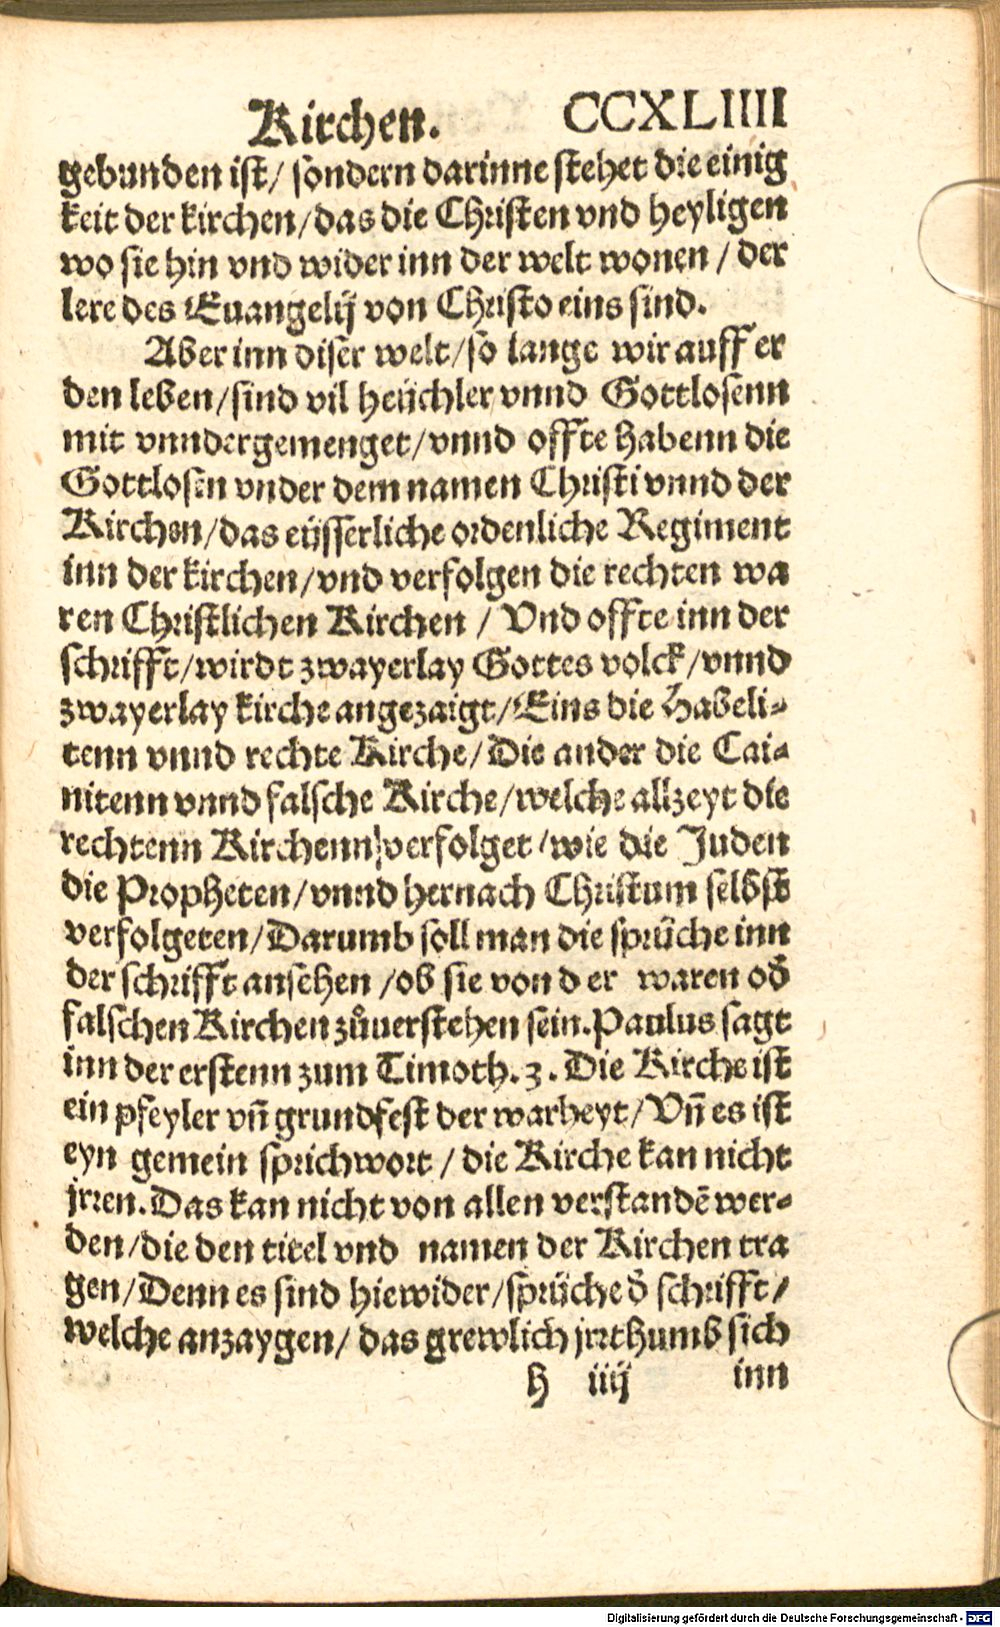 Kirchen. CCXLIIII
gebunden ist/ sondern darinne stehet die einig
keit der kirchen/das die Christen vnd heyligen
wo sie hin vnd wider inn der welt wonen / der
lere des Euangelij von Christo eins sind.
Aber inn diser welt/so lange wir auff er
den leben/sind vil heüchler vnnd Gottlosenn
mit vnndergemenget/vnnd offte habenn die
Gottlosen vnder dem namen Christi vnnd der
Kirchen/das eüsserliche ordenliche Regiment
inn der kirchen/vnd verfolgen die rechten wa
ren Christlichen Kirchen / Vnd offte inn der
schrifft/wirdt zwayerlay Gottes volck/vnnd
zwayerlay kirche angezaigt/Eins die Habeli-
tenn vnnd rechte Kirche/Die ander die Cai-
nitenn vnnd falsche Kirche/welche allzeyt die
rechtenn Kirchenn verfolget/wie die Juden
die Propheten/vnnd hernach Christum selbst
verfolgeten/Darumb soll man die sprüche inn
der schrifft ansehen /ob sie von der waren od̃
falschen Kirchen zůuerstehen sein.Paulus sagt
inn der erstenn zum Timoth.3. Die Kirche ist
ein pfeyler vñ grundfest der warheyt/Vñ es ist
eyn gemein sprichwort / die Kirche kan nicht
jrren.Das kan nicht von allen verstandẽ wer-
den/die den titel vnd namen der Kirchen tra
gen/Denn es sind hiewider/sprüche d̃ schrifft/
welche anzaygen/ das grewlich jrrthumb sich
h iiij inn
Digitalisierung gefördert durch die Deutsche Forschungsgemeinschaft - DFG